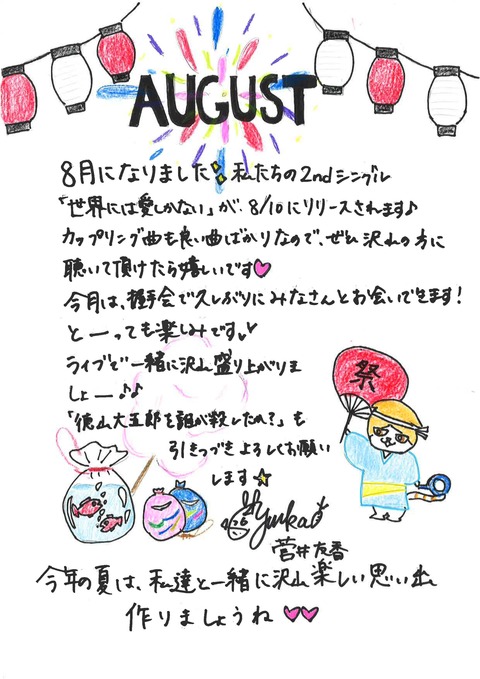 AUGUST
8月になりました 私たちの2ndシングル
「世界には愛しかない」が、8/10にリリースされます♪
カップリング曲も良い曲ばかりなので、ぜひ沢山の方に
聴いて頂けたら嬉しいです♥
今月は、握手会で久しぶりにみなさんとお会いできます!
とーっても楽しみです
ライブで一緒に沢山盛り上がりま
しょー♪♪
祭
「徳山大五郎を誰が殺したか?」も
引きつづきよろしくお願い
します☆
Yuuka
菅井友香
今年の夏は、私達と一緒に沢山楽しい思い出
作りましょうね♥♥